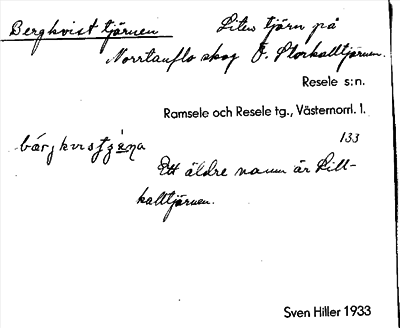 Bergkvist tjärnen Liten tjärn på
Norrtanflo skog Ö. Storkalltjärnen.
Resele s:n.
Ramsele och Resele tg., Västernorrl. l.
133
Ett äldre namn är Lill-
kalltjärnen.
Sven Hiller 1933